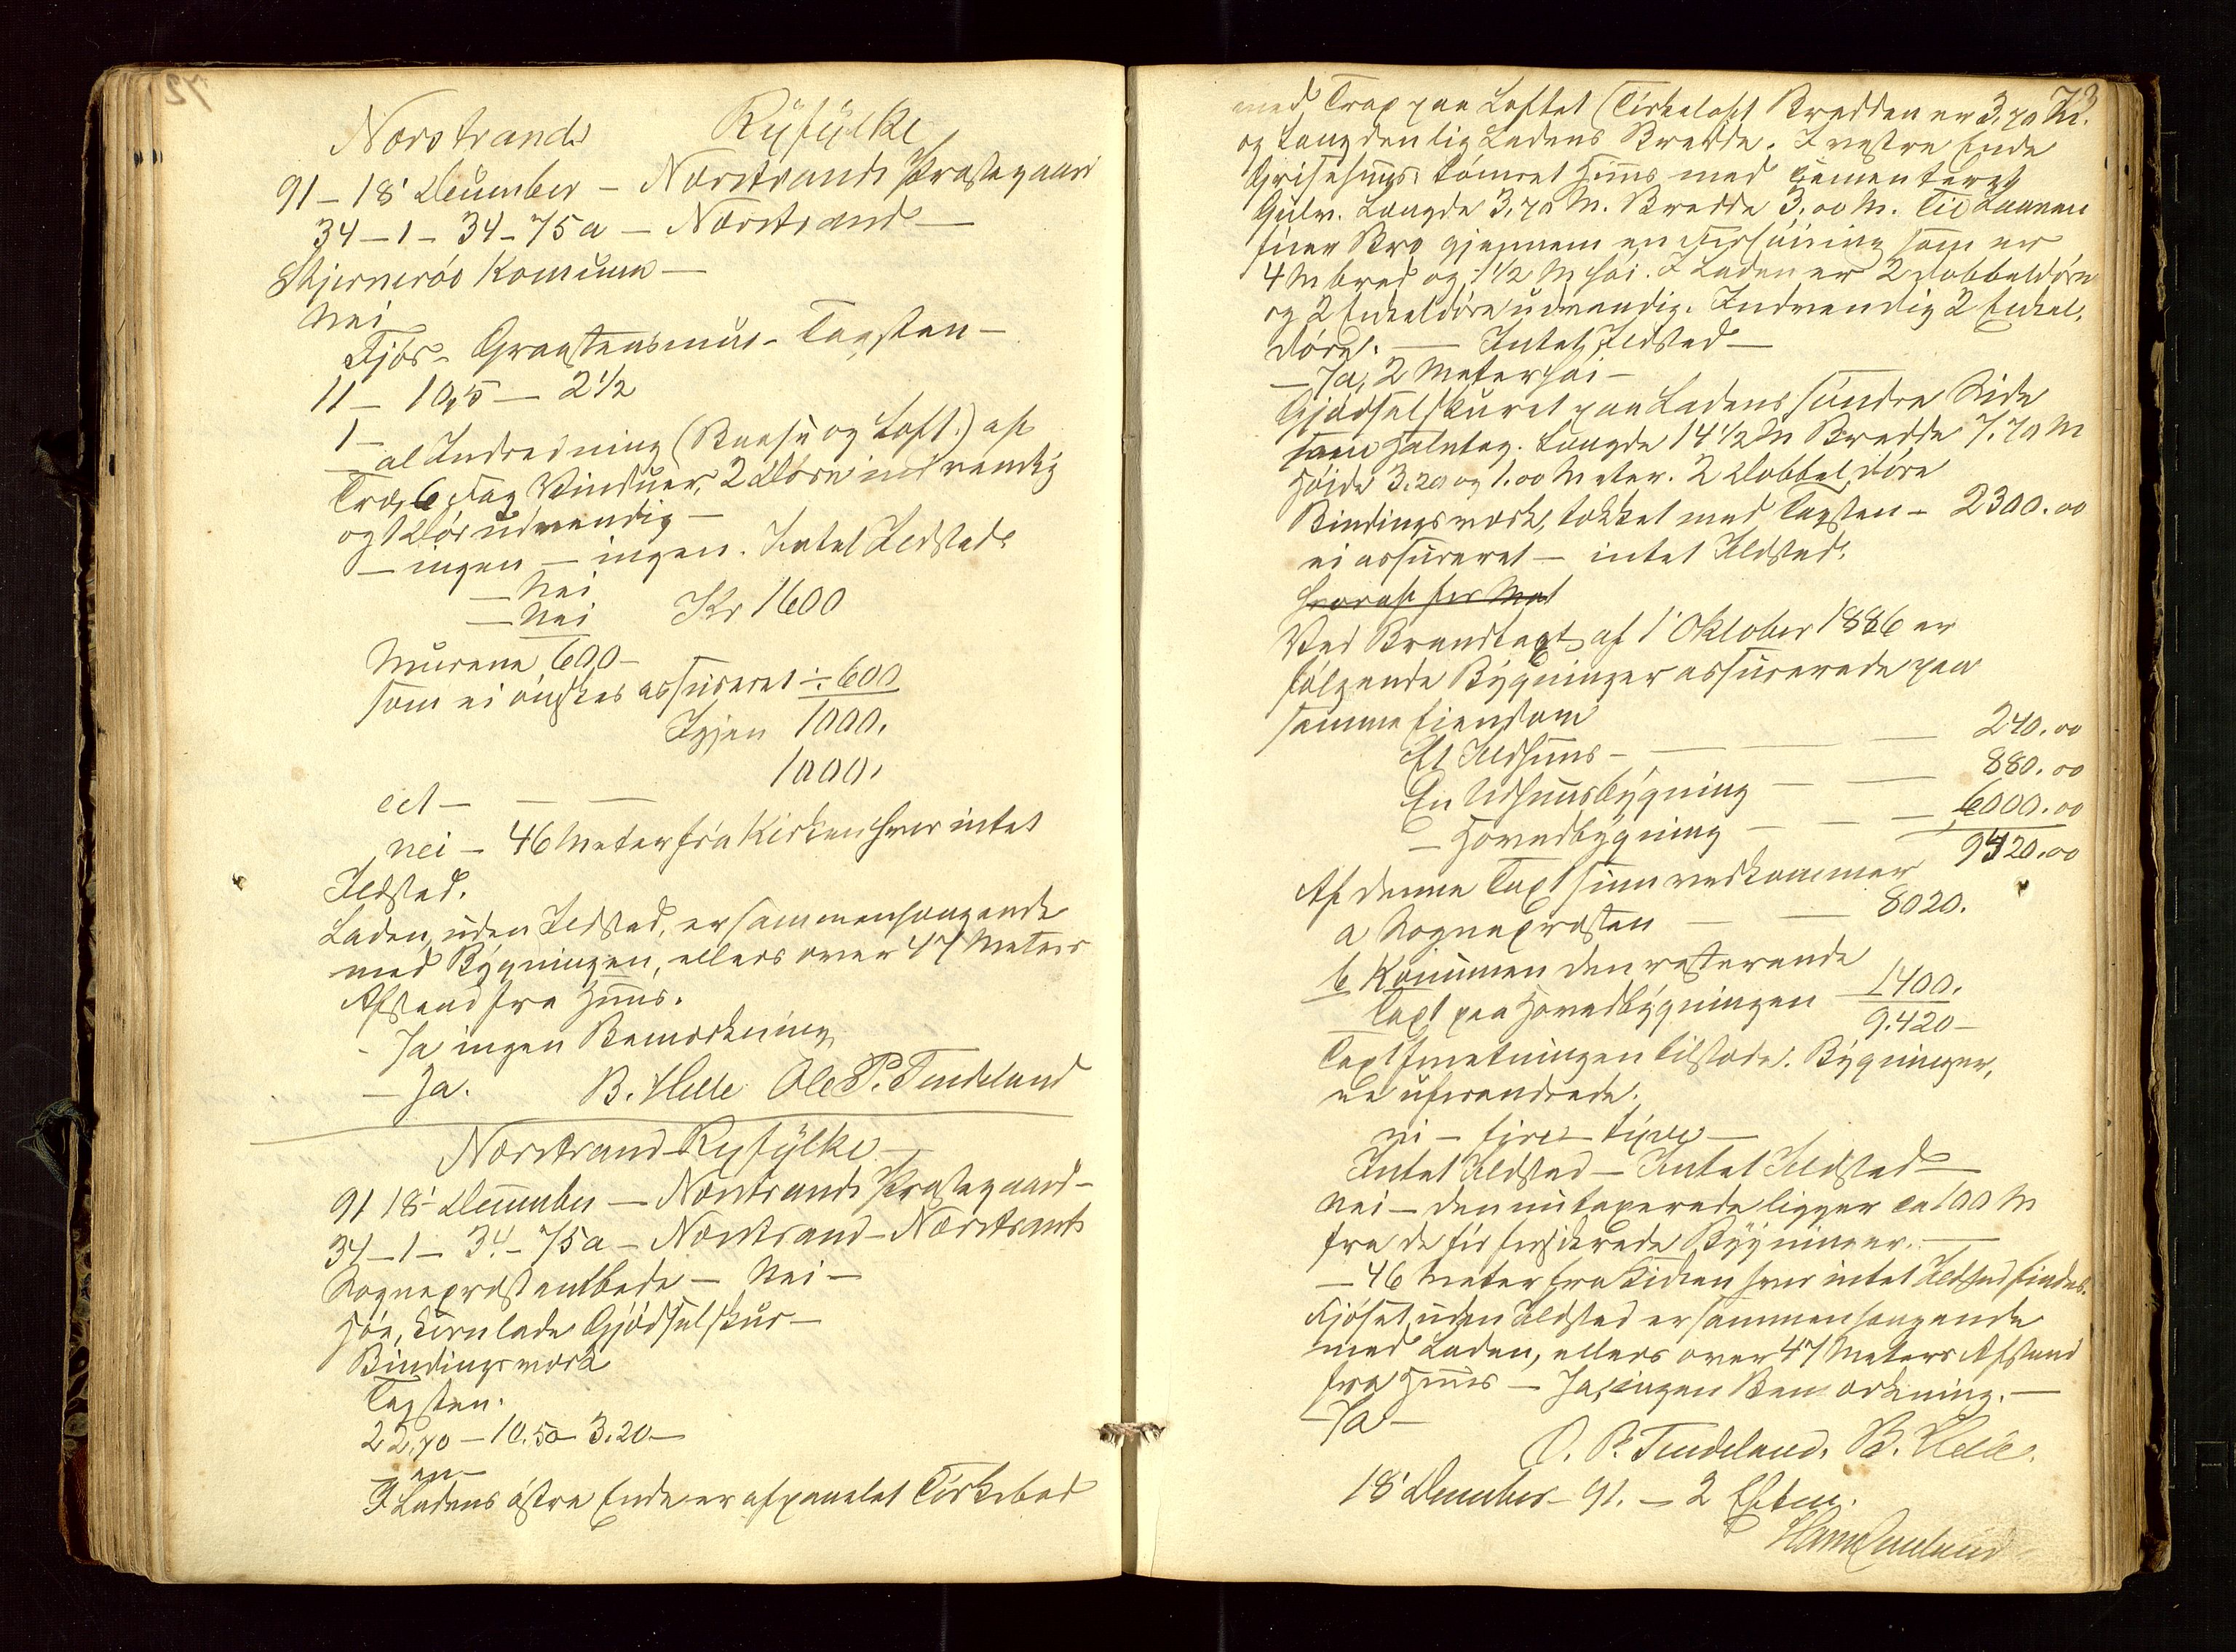 72
Nærstrands Ryfylke
91 – 18' December – Nærstrands Præstegaard
34 – 1 – 34 – 75a – Nærstrand –
Skjærnerøe Komune –
Nei
Fjøs – Graastensmur – Tagsten –
11 – 10,5 – 2½
1 –
al Indredning (Baase og Loft.) af
Træ, 6 Fag Vinduer, 2 Døre indvendig
og 1 Dør udvendig –
– ingen – ingen. Intet Ildsted.
– Nei
– Nei Kr 1600
Murene 600 –
som ei ønskes assureret ÷ 600
Igjen 1000.
1000.
et – – –
nei – 46 Meter fra Kirken hvor intet
Ildsted.
Laden, uden Ildsted, er sammenhængende
med Bygningen, ellers over 47 Meters
Afstand fra Huus.
– Ja ingen Bemærkning
– Ja. B. Helle Ole P. Tindeland
Nærstrand Ryfylke –
91 18' December – Nærstrands Præstegaard –
34 – 1 – 34 – 75a – Nærstrand – Nærstrands
Sognepræstembede – Nei –
Høe, Kornlade Gjødselskur –
Bindingsværk
Tagsten.
22,70 – 10.50 – 3.20 –
en –
I Ladens østre Ende er afpanelet Tørkebod
73
med Trap paa Loftet (Tørkeloft Bredden er 3,70 M.
og Længden lig Ladens Bredde. I vestre Ende
Grisehuus tømret Huus med cementeret
Gulv. Længde 3,70 M. Bredde 3,00 M. Til Laaven
fører Bro gjennem en som er
4 M bred og 1½ M høi. I Laden er 2 Dobbeldøre
og 2 Enkeltdøre udvendig. Indvendig 2 Enkel,
døre. – Intet Ildsted –
– Ja, 2 Meter høi –
Gjødselskuret paa Ladens søndre Side
som Halvtag. Længde 14½ M Bredde 7.70 M
Høide 3.20 og 1.00 Meter. 2 Dobbel døre
Bindingsværk, tækket med Tagsten – 2300.00
ei assureret – intet Ildsted.
Hvoraf for Mat
Ved Brandtaxt af 1' Oktober 1886 er
følgende Bygninger assurerede paa
samme Eiendom
Et Ildhuus – – – – 240.00
En Udhuusbygning – – 880.00
– Hovedbygning – – – 6000.00
9420.00
Af denne Taxtsum vedkommer
a Sognepræsten – – 8020.
b Komunen den resterende
Taxt paa Hovedbygningen 1400.
9.420 –
Taxtsmætningen tilstæde. Bygninger,
ne uforandrede.
ni – fire – tyve –
Intet Ildsted – Intet Ildsted –
Nei – den nu taxerede ligger ca 100 M
fra de før forsikrede Bygninger. –
– 46 Meter fra Kirken hvor intet Ildsted findes.
Fjøset, uden Ildsted er sammenhængende
med Laden, ellers over 47 Meters Afstand
fra Huus – Ja, ingen Bemærkning. –
– Ja –
O. P. Tindeland. B. Helle.
18' December – 91. – 2 Eftm.